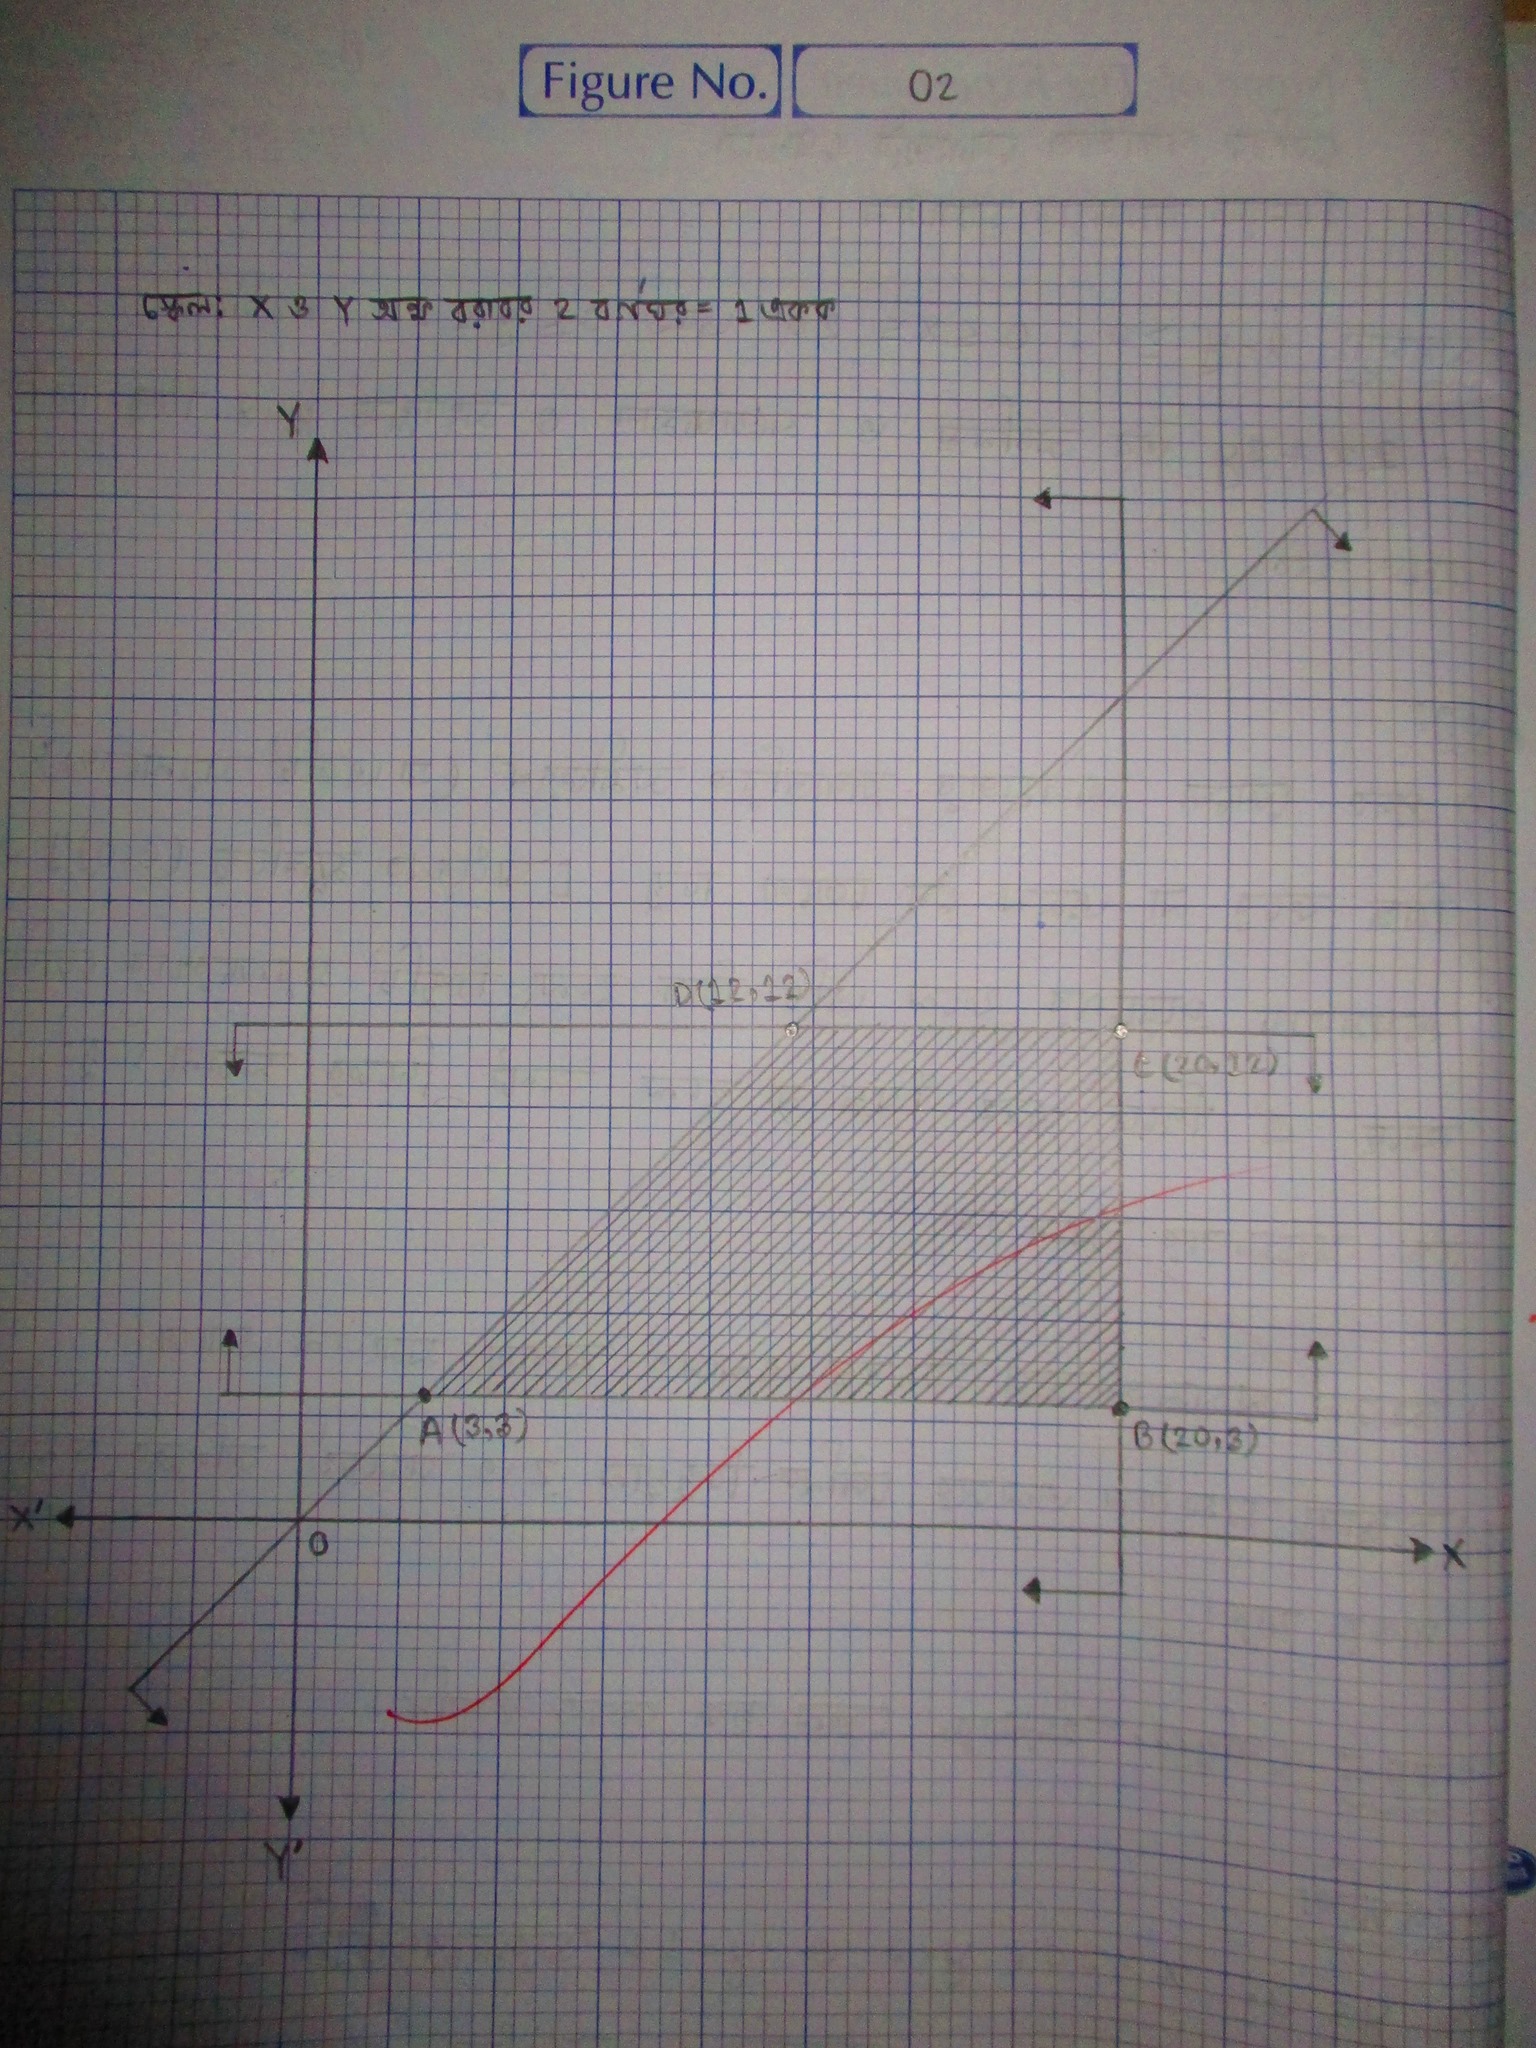 Figure No. 02
স্কেল: X ও Y অক্ষ বরাবর 2 বর্গঘর = 1 একক
Y
D(12,12)
C(20,12)
A(3,3)
B(20,3)
X'
O
X
Y'